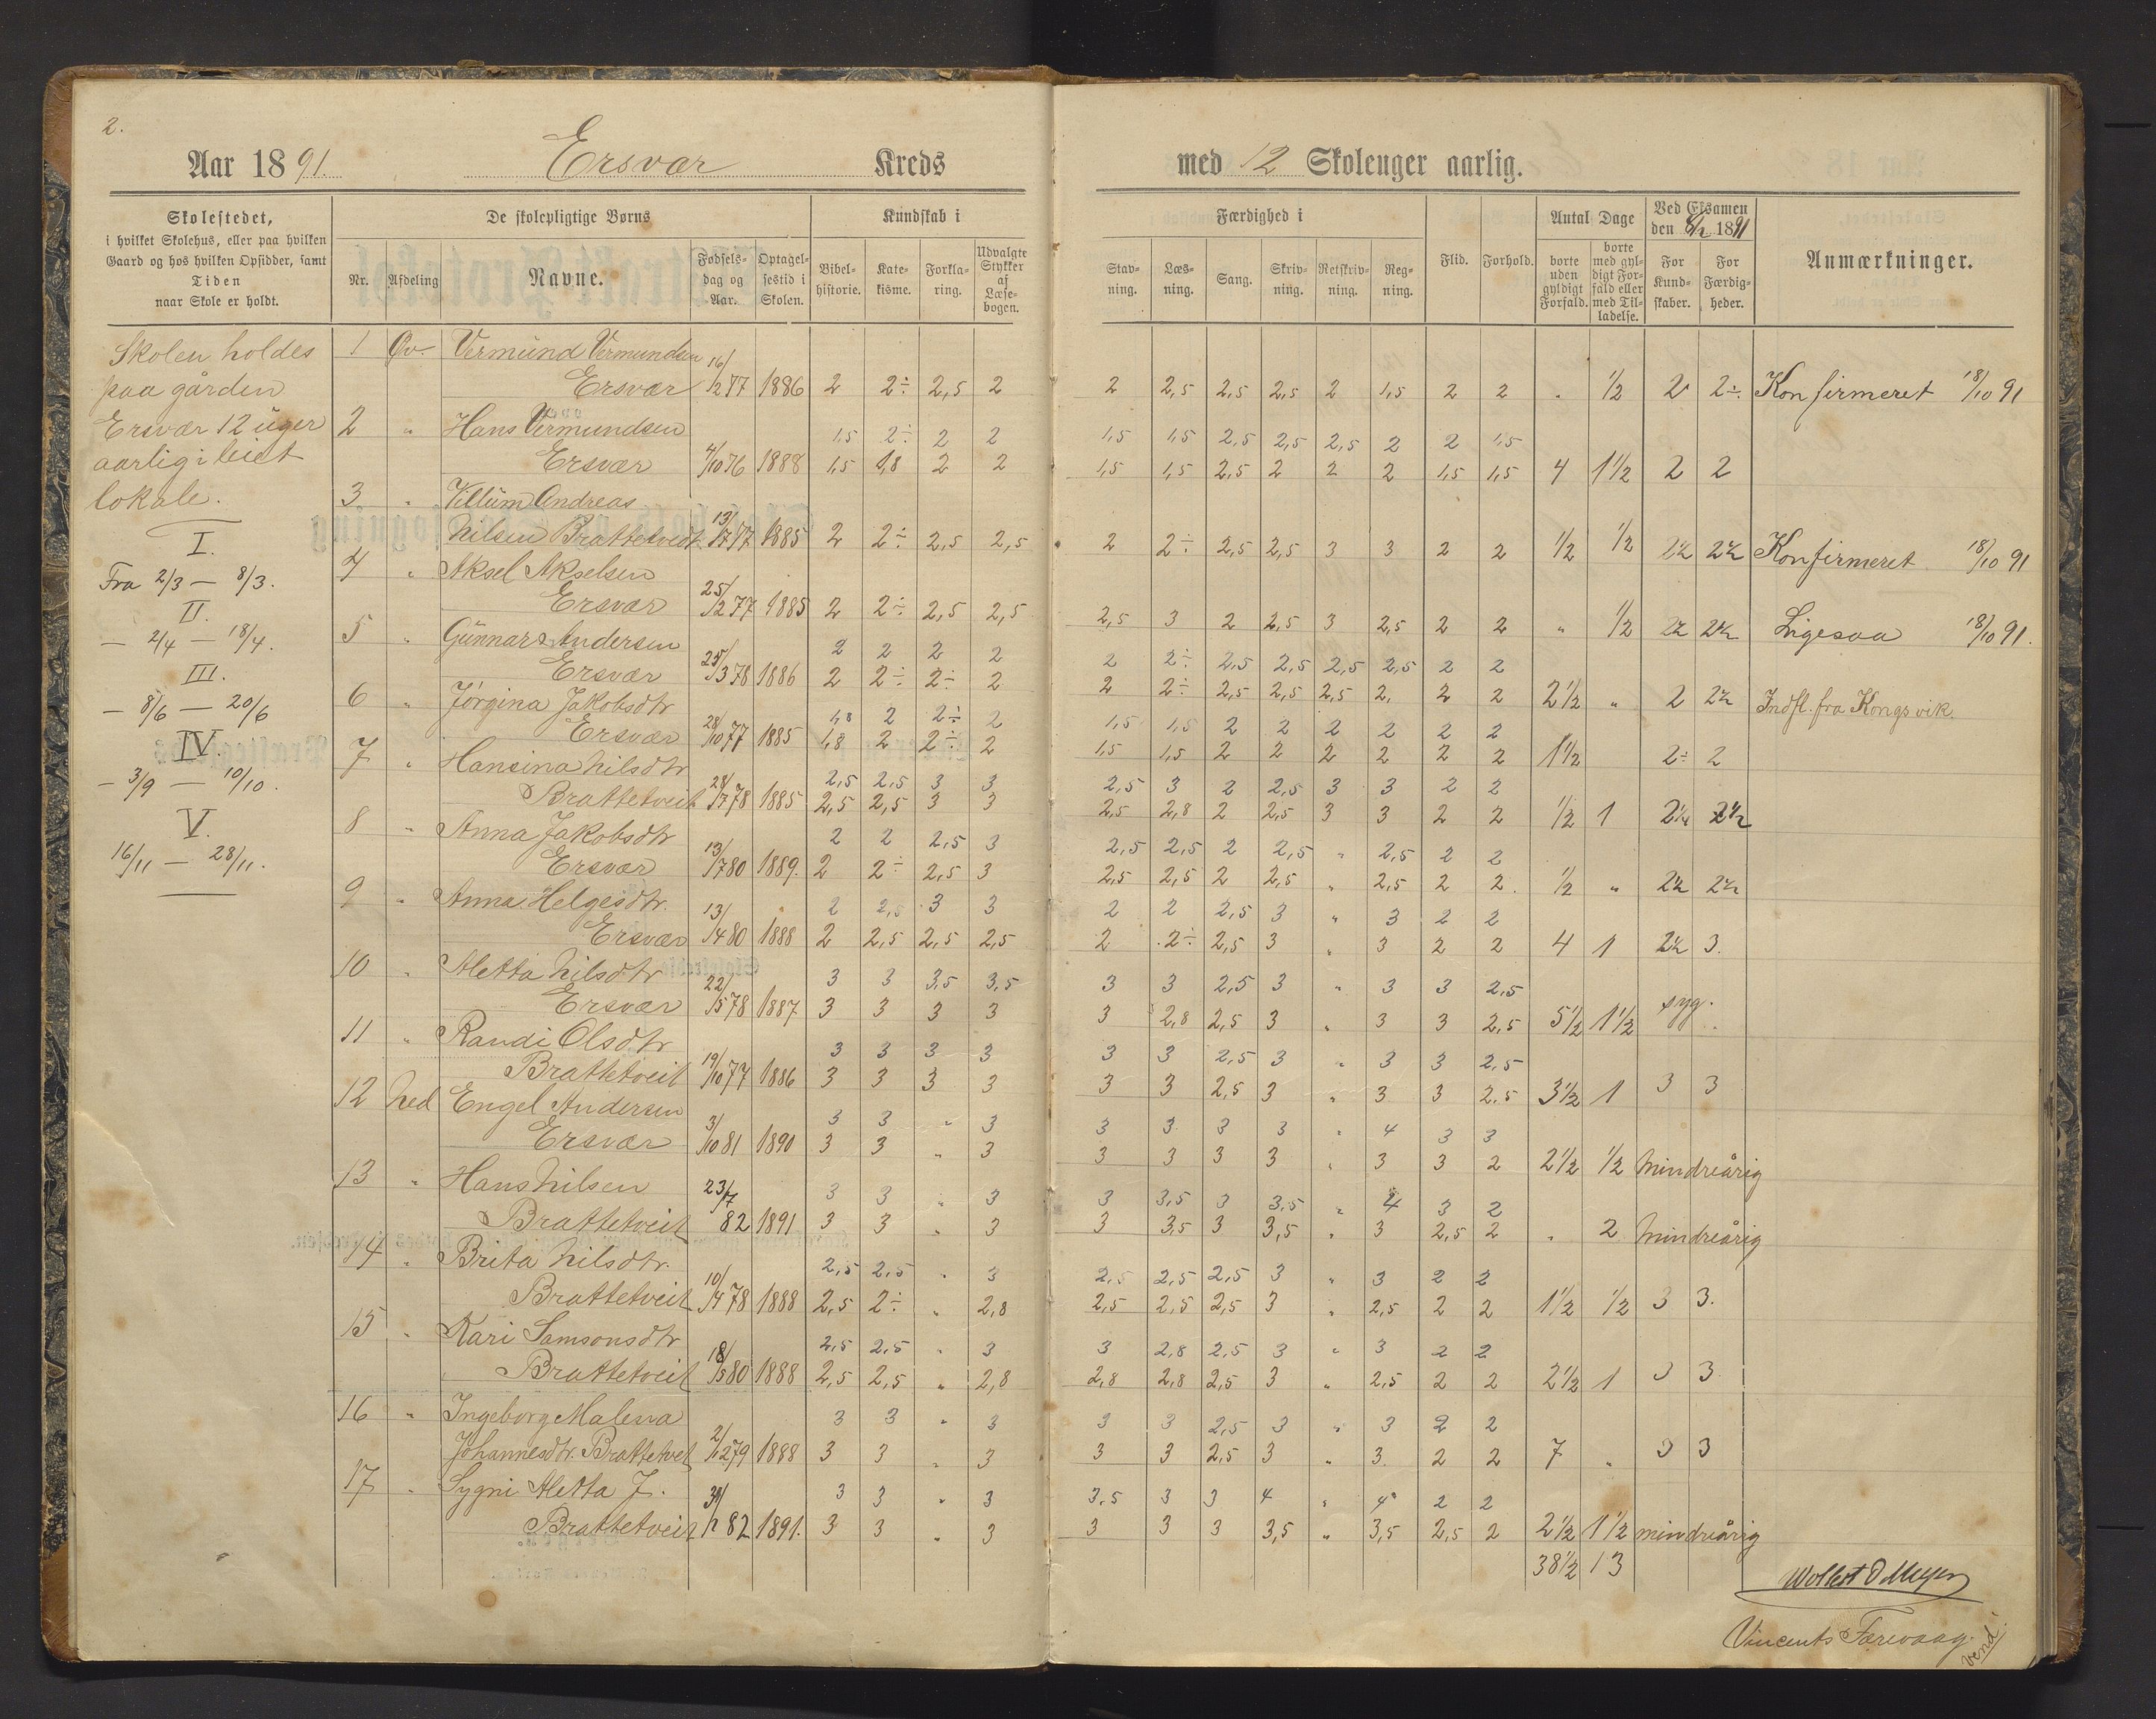 2.
Aar 1891. Ersvær Kreds
Skolestedet,
i hvilket Skolehus, eller paa hvilken
Gaard og hos hvilken Opsidder, samt
Tiden
naar Skole er holdt.
De skolepligtige Børns
Nr. Afdeling Navne. Fødsels-dag og Aar. Optagel-sestid i Skolen.
Kundskab i
Bibel-historie. Kate-kisme. Forkla-ring. Udvalgte Stykker af Læse-bogen.
Skolen holdes
paa gården
Ersvær 12 uger
aarlig i leiet
lokale.
I.
Fra 2/3 — 8/3.
II.
— 2/4 — 18/4.
III.
— 8/6 — 20/6
IV.
— 3/9 — 10/10.
V.
16/11 — 28/11.
1 Øv. Vermund Vermundsen
Ersvær 16/12 77 1886 2 2÷ 2,5 2
2 " Hans Vermundsen 1,5 2÷ 2 2
Ersvær 4/10 76 1888 1,5 1,8 2 2
3 " Villum Andreas
Nilsen Brattetvedt 13/7 77 1885 2 2÷ 2,5 2,5
4 " Aksel Akselsen
Ersvær 25/12 77 1885 2 2÷ 2,5 2,5
5 " Gunnar Andersen 2 2 2 2
Ersvær 25/3 78 1886 2 2÷ 2÷ 2
6 " Jörgina Jakobsdtr 1,8 2 2÷ 2
Ersvær 28/10 77 1885 1,8 2 2÷ 2
7 " Hansina Nilsdtr 2,5 2,5 3 3
Brattetveit 28/7 78 1885 2,5 2,5 3 3
8 " Anna Jakobsdtr 2 2 2,5 3
Ersvær 13/7 80 1889. 2 2÷ 2,5 3
9 " Anna Helgesdtr. 2 2,5 3 3
Ersvær 13/4 80 1888 2 2,5 2,5 2,5
10 " Aletta Nilsdtr 3 3 3,5 3,5
Ersvær 22/5 78 1887 3 3 3 3
11 " Randi Olsdtr 3 3 3 3
Brattetveit 19/10 77 1886 3 3 3 3
12 Ned Engel Andersen 3 3 " 3
Ersvær 3/10 81 1890 3 3 " 3
13 " Hans Nilsen 3 3 " 3
Brattetveit 23/7 82 1891 3 3 " 3
14 " Brita Nilsdtr. 2,5 2,5 " 3
Brattetveit 10/4 78 1888 2,5 2÷ " 2,8
15 " Kari Samsonsdtr 2,5 2,5 " 3
Brattetveit 18/5 80 1888 2,5 2,5 " 2,8
16 " Ingeborg Malena 3 3 " 3
Johannesdtr. Brattetvet 2/12 79 1888 3 3 " 3
17 " Sygni Aletta J. 3 3 " 3
Brattetveit 82 1891. 3 3 " 3
med 12 Skoleuger aarlig.
Færdighed i
Stav-ning. Læs-ning. Sang. Skriv-ning. Retskriv-ning. Reg-ning. Flid. Forhold.
Antal Dage
borte uden gyldigt Forfald. borte med gyl-digt For-fald eller med Til-ladelse.
Ved Eksamen
den 1891
For Kund-skaber. For Færdig-heder.
Anmærkninger.
2 2,5 2,5 2,5 2 1,5 2 2 " 1/2 2 2÷ Konfirmeret 18/10 91
1,5 1,5 2,5 2,5 2,5 2 2 1,5
1,5 1,5 2,5 2 2 2 1,5 1,5 4 1 1/2 2 2
2 2÷ 2,5 2,5 3 3 2 2 1/2 1/2 2 1/2 2 1/2 Konfirmeret 18/10 91
2,5 3 2 2,5 3 2,5 2 2 " 1/2 2 1/2 2 1/2 Ligesaa 18/10 91.
2 2÷ 2,5 2,5 2,5 2,5 2 2
2 2÷ 2,5 2,5 2,5 2, 2 2 2 1/2 " 2 2 1/2 Indfl. fra Kongsvik.
1,5 1,5 2 2 2 2 2 2
1,5 1,5 2 2 2 2 2 2 1 1/2 2÷ 2
2,5 3 2 2,5 3 3 2 2
2,5 2,8 2 2,5 3 3 2 2 1/2 1 2 1/4 2 1/2
2,5 2,5 2 2,5 " 2,5 2 2
2,5 2,5 2 2,5 " 2,5 2 2. 1/2 " 2 1/2 2 1/2
2 2 2,5 3 " 3 2 2
2 2÷ 2,5 3 " 3 2 2 4 1 2 1/2 3.
3 3 2,5 3 " 3 3 2,5
3 2,8 2,5 3 " 3 3 2,5 5 1/2 1 1/2 syg.
3 3 2,5 3 " 3 3 2,5
3 3 2,5 3 " 3 3 2.5 3 1/2 1 3 3
3 3 3 3 " 4 3 3
3 3 3 3 " 3 3 2 2 1/2 1/2 Mindreårig
3 3,5 3 3,5 " 4 3 2
3 3,5 3 3,5 " 3 2,5 2 " 2 Mindreårig
2,5 2,5 2,5 3 " 3 2 2
2,5 2,5 2,5 3 " 2,5 2 2 1 1/2 1/2 3 3.
3 2,8 2,5 3 " 3 2 2
2,8 2,8 2,5 3 " 2,5 2 2 2 1/2 1 3 3
3 3 2,5 3 " 3 2 2
3 3 2,5 3 " 3. 2 2 7 " 3 3
3,5 3 3 4 " 4 2 2
3 3 3 3,5 " 3,5 2,5 2 2 1/2 1 1/2 mindreårig
38 1/2 13
Wollert D Meyer
Vincents Farevaag.
vend.